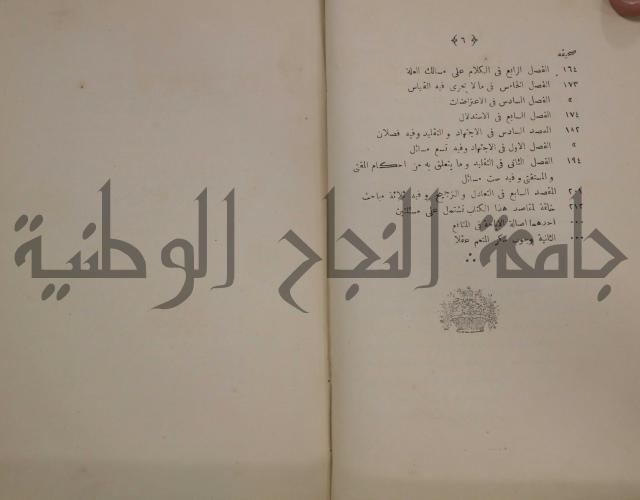 ﴿ ٦ ﴾
صحيفه
١٦٤ الفصل الرابع فى الكلام على مسالك العلة
١٧٣ الفصل الخامس فى ما لا يجرى فيه القياس
» الفصل السادس فى الاعتراضات
١٧٤ الفصل السابع فى الاستدلال
١٨٢ المقصد السادس فى الاجتهاد و التقليد وفيه فصلان
» الفصل الاول فى الاجتهاد وفيه تسع مسائل
١٩٤ الفصل الثانى فى التقليد و ما يتعلق به من احكام المفتى
و المستفتى و فيه ست مسائل
المقصد السابع فى التعادل و الترجيح و فيه ثلاثة مباحث
٢١٢ خاتمة لمقاصد هذا الكتاب تشتمل على مسئلتين
٠٠٠ احدهما اصالة الاباحة فى المنافع
٠٠٠ الثانية وجوب شكر المنعم عقلا
جامعة النجاح الوطنية